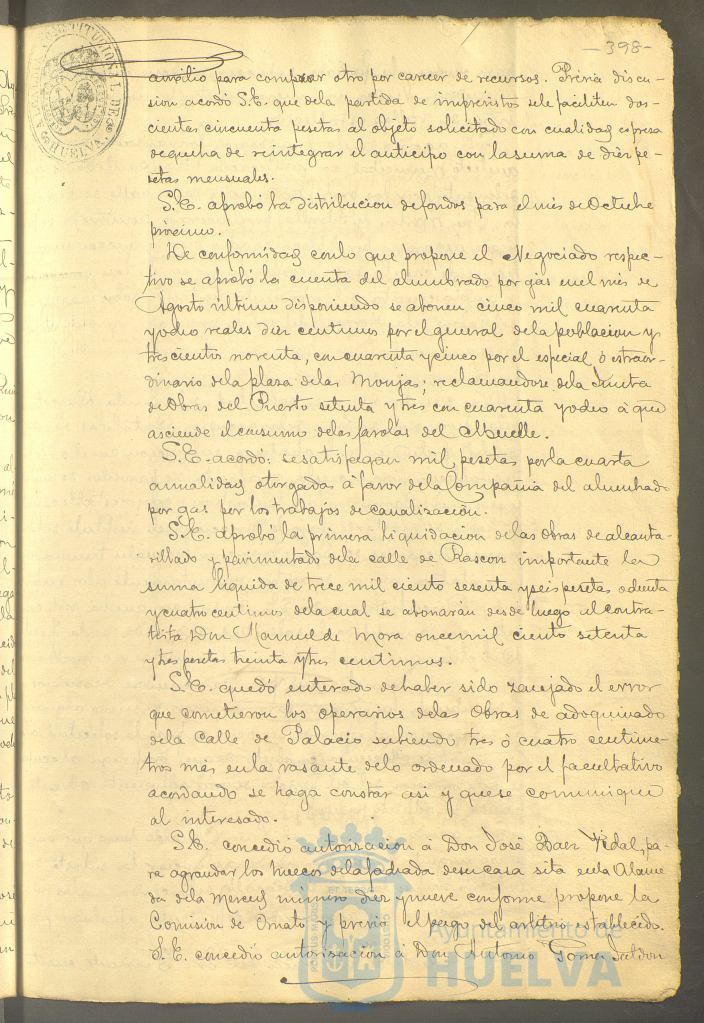 -398-
auxilio para comprar otro por carecer de recursos. Prévia discu-
sion acordó S.E. que de la partida de imprevistos se le faciliten dos-
cientas cincuenta pesetas al objeto solicitado con cualidad espresa
de que ha de reintegrar el anticipo con la suma de diez pe-
setas mensuales.
S.E. aprobó la distribucion de fondos para el mes de Octubre
próximo.
De conformidad con lo que propone el Negociado respec-
tivo se aprobó la cuenta del alumbrado por gas en el mes de
Agosto último disponiendo se abonen cinco mil cuarenta
y ocho reales diez centimos por el general de la poblacion y
trescientos noventa, con cuarenta y cinco por el especial ó estraor-
dinario de la plaza de las Monjas; reclamandose de la Junta
de Obras del Puerto setenta y tres con cuarenta y ocho á que
asciende el consumo de las farolas del Muelle.
S.E. acordó: se satisfagan mil pesetas por la cuarta
anualidad otorgada á favor de la Compañia del alumbrado
por gas por los trabajos de canalización.
S.E. aprobó la primera liquidacion de las obras de alcanta-
rillado y pavimentado de la calle de Rascon importante la
suma liquida de trece mil ciento sesenta y seis pesetas ochenta
y cuatro centimos de la cual se abonarán desde luego al contra-
tista Don Manuel de Mora once mil ciento setenta
y tres pesetas treinta y tres centimos.
S.E. quedó enterado de haber sido zanjado el error
que cometieron los operarios de las Obras de adoquinado
de la Calle de Palacio subiendo tres ó cuatro centime-
tros más en la rasante de lo ordenado por el facultativo
acordando se haga constar asi y que se comunique
al interesado.
S.E. concedió autorizacion á Don José Baez Vidal, pa-
ra agrandar los huecos de la fachada de su casa sita en la Alame-
da de la Merced número diez y nueve conforme propone la
Comision de Ornato y previo el pago del arbitrio establecido.
S.E. concedió autorizacion á Don Antonio Gomez
AYUNTAMIENTO CONSTITUCIONAL DE HUELVA
Ayuntamiento de
HUELVA